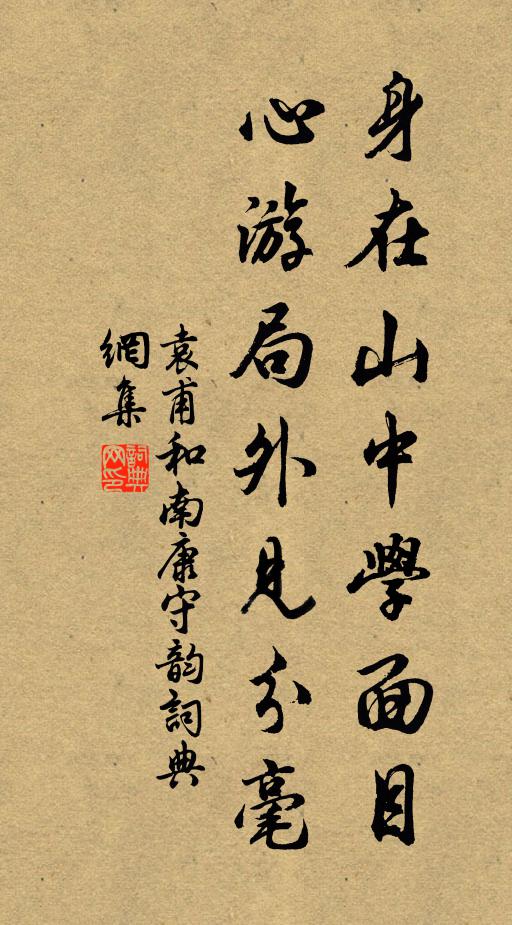 身在山中學面目
心游局外見分毫
袁甫和南康守韵詞典
網集
詞典網印